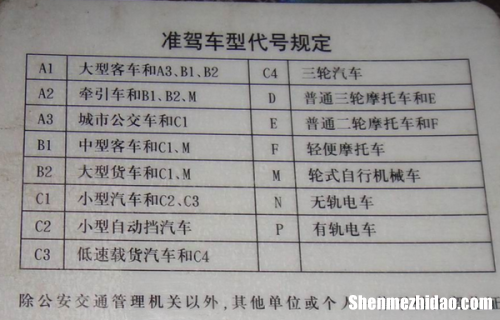 准驾车型代号规定
A1 大型客车和A3、B1、B2 C4 三轮汽车
A2 牵引车和B1、B2、M D 普通三轮摩托车和E
A3 城市公交车和C1 E 普通二轮摩托车和F
B1 中型客车和C1、M F 轻便摩托车
B2 大型货车和C1、M M 轮式自行机械车
C1 小型汽车和C2、C3 N 无轨电车
C2 小型自动挡汽车 P 有轨电车
C3 低速载货汽车和C4
除公安交通管理机关以外，其他单位或个人
Shenmezhidao.com